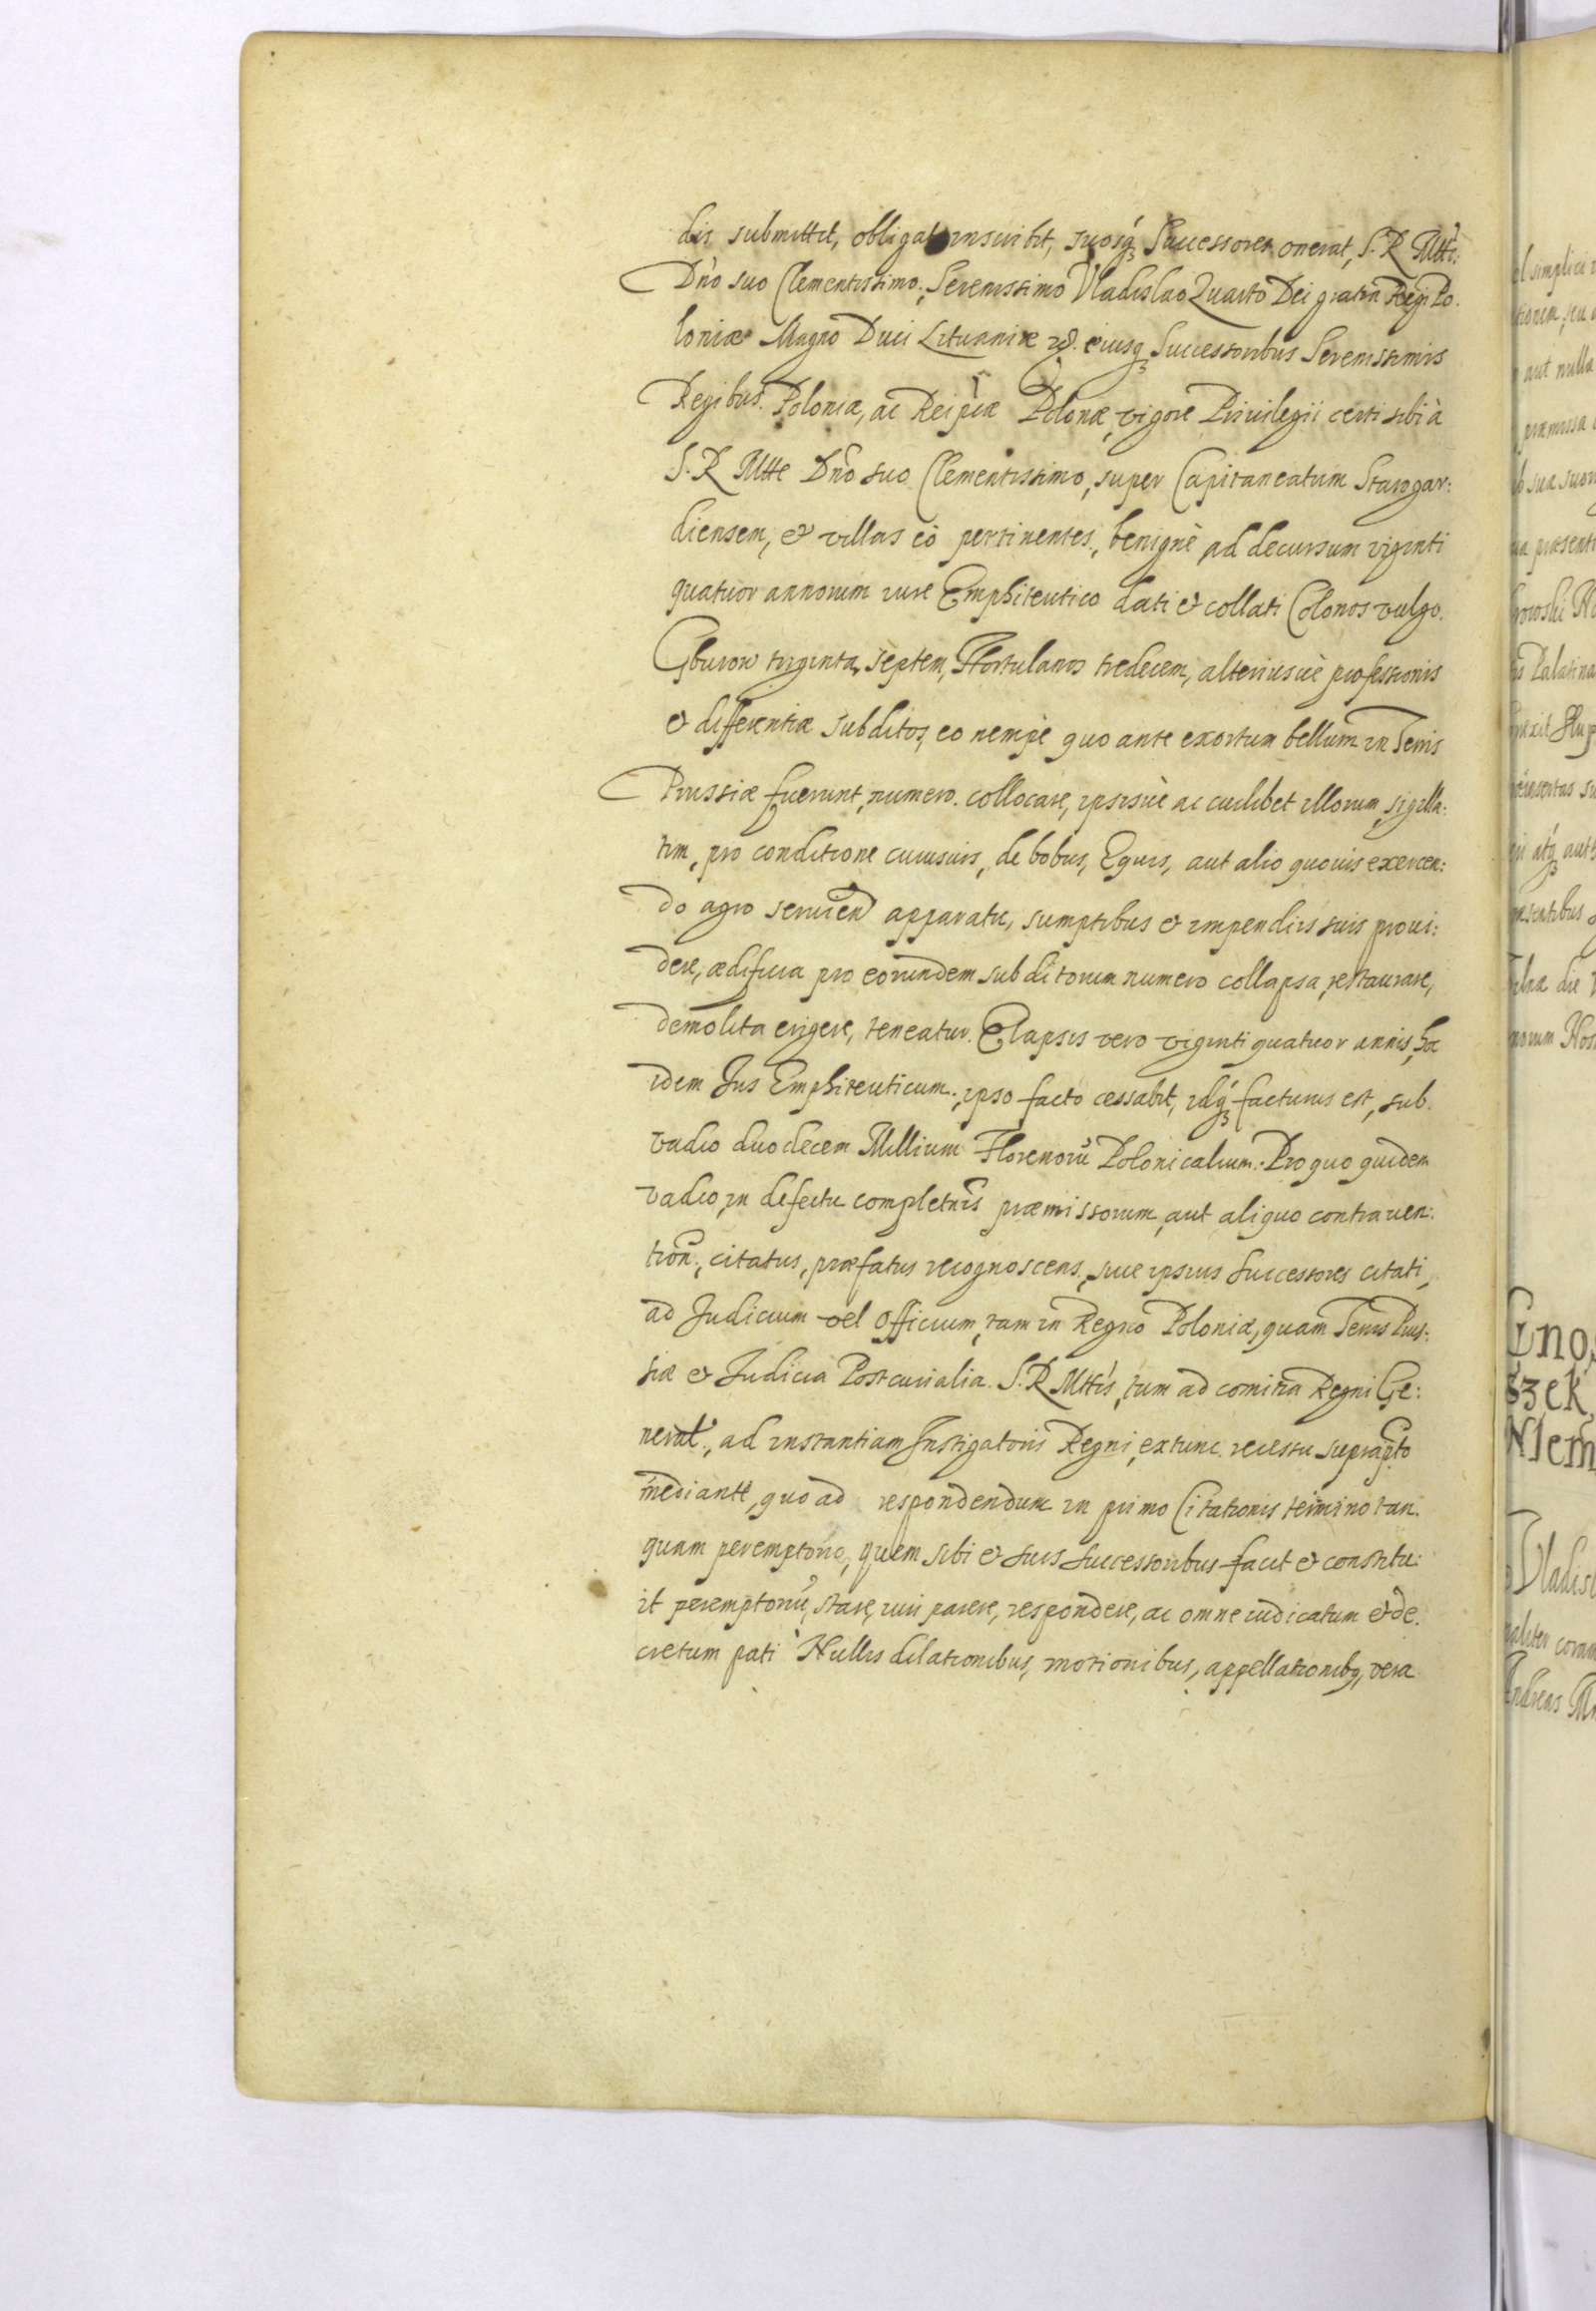 dis submittit, obligat inscribit, suosq́ꝫ Successores onerat, S. R. Mtti:
Dn̄o suo Clementissimo, Serenissimo Vladislao Quarto Dei gratia Regi Po.
loniæ Magno Duci Lituaniæ ꝛc. eiusqꝫ Successoribus Serenissimis
Regibus Poloniæ, ac Reipcæ Polonæ, vigore Priuilegii certi sibi à
S. R. Mtte Dn̄o suo Clementissimo, super Capitaneatum Starogar:
diensem, & villas eò pertinentes, benignè ad decursum viginti
quatuor annorum iure Emphiteutico dati & collati Colonos vulgo.
Gburow triginta septem, Hortulanos tredecem, alteriusuè professionis
& differentiæ subditos, eo nempè quo ante exortum bellum in Terris
Prussiæ fuerunt, numero collocare, ipsisuè ac cuilibet illorum, sigilla:
tim, pro conditione cuiusuis, de bobus, Equis, aut alio quouis exercen:
do agro seruien̄ apparatu, sumptibus & impendiis suis proui:
dere, ædificia pro eorundem subditorum numero collapsa, restaurare,
demolita erigere, teneatur. Elapsis vero viginti quatuor annis, hoc
idem Jus Emphiteuticum, ipso facto cessabit, idq́ꝫ facturus est, sub.
vadio duodecem Millium Florenorū Polonicalium. Pro quo quidem
vadio, in defectu completn̄is præmissorum, aut aliquo contrauen:
tion̄., citatus, præfatus recognoscens, siue ipsius Successores citati,
ad Judicium vel Officium, tam in Regno Poloniæ, quam Terris Prus:
siæ & Judicia Postcurialia S. R. Mttis, tum ad comitia Regni Ge:
neral., ad instantiam Instigatoris Regni, extunc recessu suprap̄to
mediante, quo ad respondendum in primo Citationis termino tan.
quam peremptorio, quem sibi & suis Successoribus facit & constitu:
it peremptoriū, stare, iuri parere, respondere, ac omne iudicatum & de.
cretum pati Nullis dilationibus, motionibus, appellationibꝫ, vera